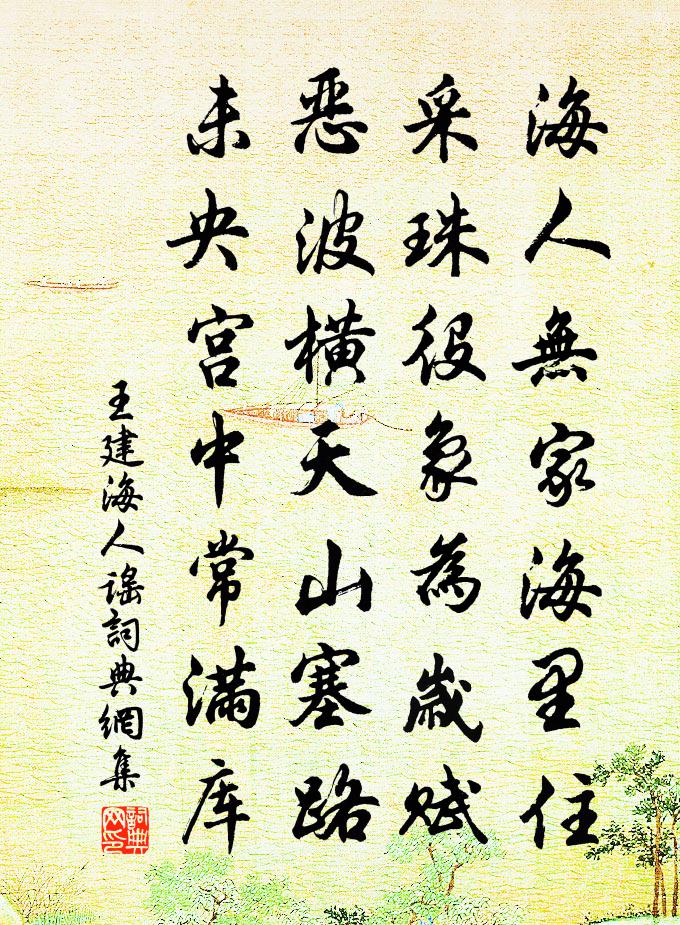 海人無家海里住
采珠役象為歲賦
恶波橫天山塞路
未央宫中常满库
王建海人謠詞典網集
詞典网印